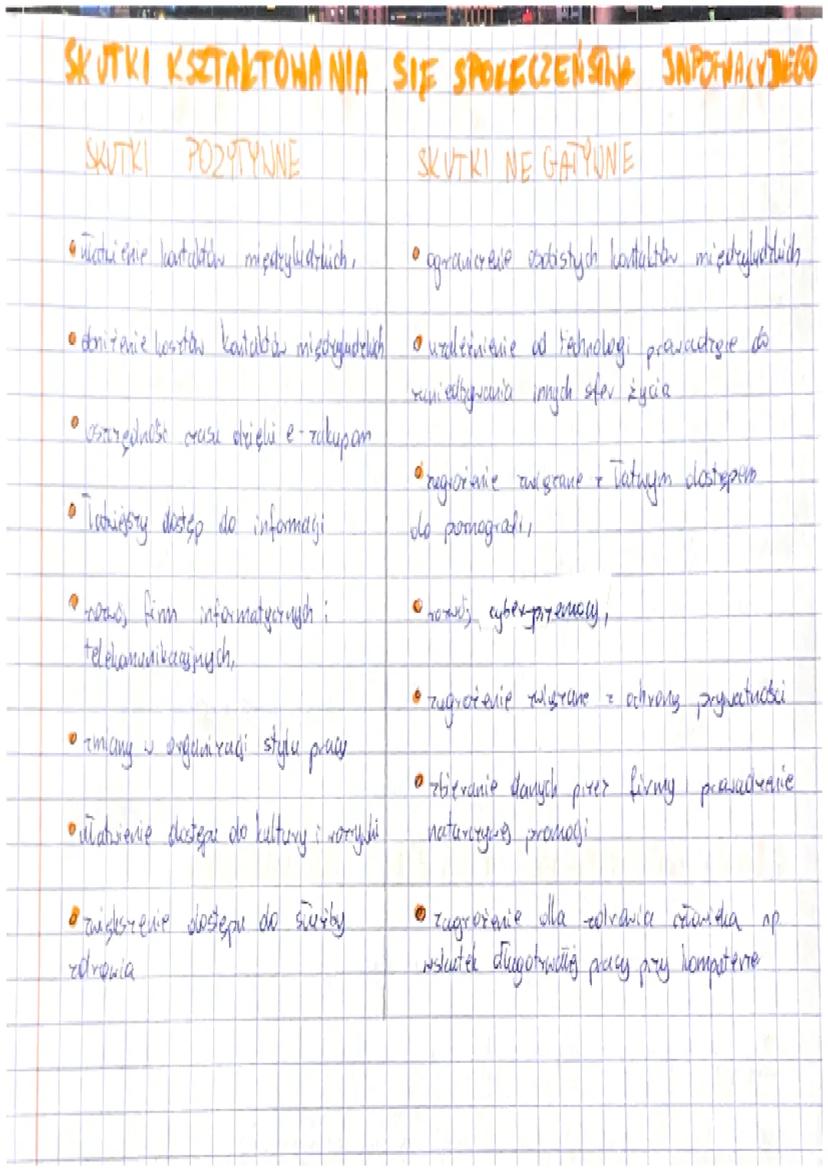 SKUTKI KSZTAŁTOWANIA SIĘ SPOŁECZEŃSTWA INFORMACYJNEGO
SKUTKI POZYTYWNE
• ułatwienie kontaktów międzyludzkich,
• obniżenie kosztów kontaktów międzyludzkich
• oszczędność czasu dzięki e-zakupom
• łatwiejszy dostęp do informacji
• rozwój firm informatycznych i
telekomunikacyjnych,
• zmiany w organizacji stylu pracy
• ułatwienie dostępu do kultury i rozrywki
• zwiększenie dostępu do służby
zdrowia
SKUTKI NEGATYWNE
• ograniczenie osobistych kontaktów międzyludzkich
• uzależnienie od technologi prowadzące do
zaniedbywania innych sfer życia
• zagrożenie związane z łatwym dostępem
do pornografi,
• rozwój cyber-przemocy,
• zagrożenie związane z ochroną prywatności
• zbieranie danych przez firmy prowadzenie
natarczywej promocji
• zagrożenie dla zdrowia człowieka np.
wskutek długotrwałej pracy przy komputerze